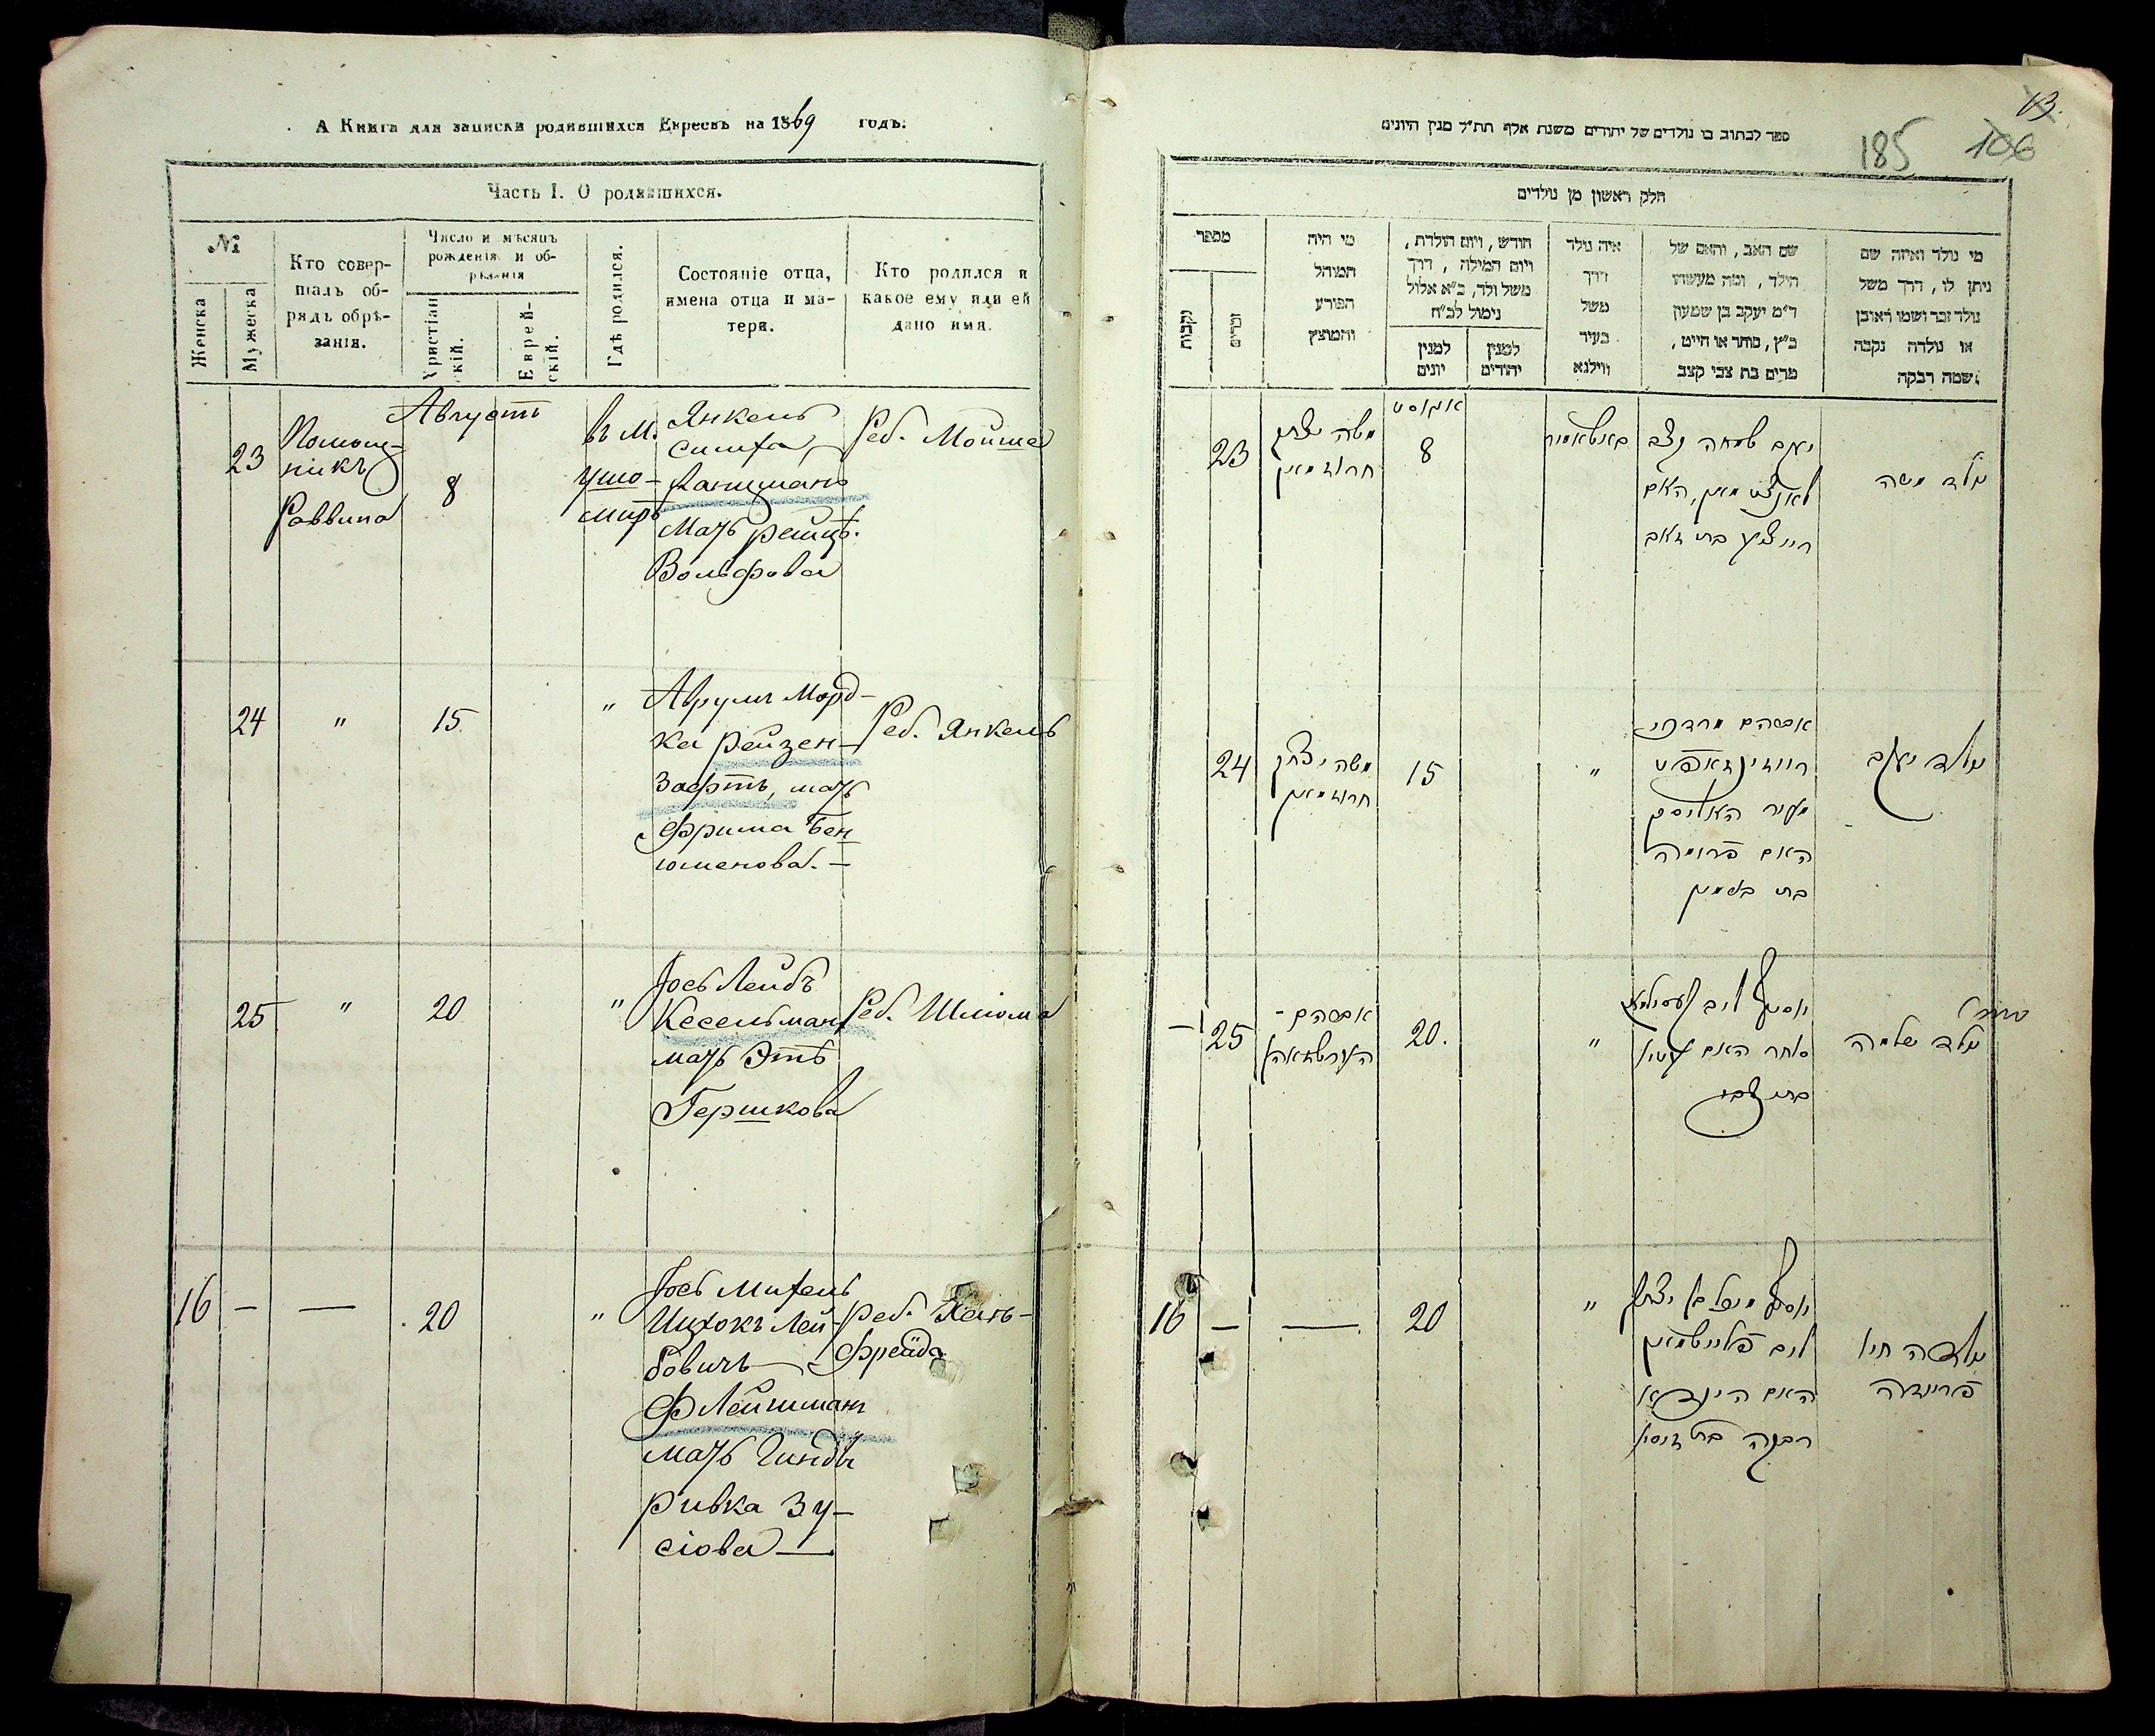 А Книга для записки родившихся Евреевъ на 1869 годъ.
Часть I. О родившихся.
№
Женска
Мужеска
Кто совер-
шалъ об-
рядъ обрѣ-
занія.
Число и мѣсяцъ
рожденія и об-
рѣзанія
Христіан
скій.
Еврей-
скій.
Гдѣ родился.
Состояніе отца,
имена отца и ма-
тери.
Кто родился и
какое ему или ей
дано имя.
Августъ
23
Помощ-
никъ
Раввина
8
въ м.
Ушо-
миръ
Янкель
Симха
Ланцманъ
Мать
Вольфова
Реб. Мойше
24
"
15
"
Аврумъ Морд-
ка Рейзен-
зафтъ, мать
Фрима Бен
юменова. —
Реб. Янкель
25
"
20
"
Іось Лейбъ
Кесельман
мать Этъ
Гершкова
Реб. Шліома
16 — —
20
"
Іось Михель
Ицхокъ Лей-
бовичъ —
Флейшман
мать Гиндъ
Ривка Зу-
сіова —
реб. Хая-
Фрейда
13.
185 106
ספר לכתוב בו נולדים של יהודים משנת אלף תת״ל מנין היונים
חלק ראשון מן נולדים
מספר
נקבות
זכרים
מי היה
המוהל
הפורע
והמוצץ
חודש, ויום הולדת,
ויום המילה, דרך
משל ולד, כ״א אלול
נימול לכ״ח
למנין
יונים
למנין
יהודים
איה נולד
דרך
משל
בעיר
ווילנא
שם האב, והאם של
הילד, ומה מעשהו
ד״מ יעקב בן שמעון
כ״ץ, סוחר או חייט,
מרים בת צבי קצב
מי נולד ואיזה שם
ניתן לו, דרך משל
נולד זכר ושמו ראובן
או נולדה נקבה
ושמה רבקה
אוגוסט
23
משה יצחק
8
יעקב שמחה
לאנצמאן, האם
רייצע בת זאב
נולד משה
24
משה יצחק
15
"
אברהם מרדכי
רייזינזאפט
האם פרומה
בת בנימין
נולד יעקב
25
אברהם
20.
"
יוסף ליב קעסילמאן
סוחר האם עטיא
בת צבי
נולד שלמה
16 — —
20
"
יוסף מיכל בן יצחק
ליב פליישמאן
האם הינדא
רבקה בת זוסיא
נולדה חיה
פריידה